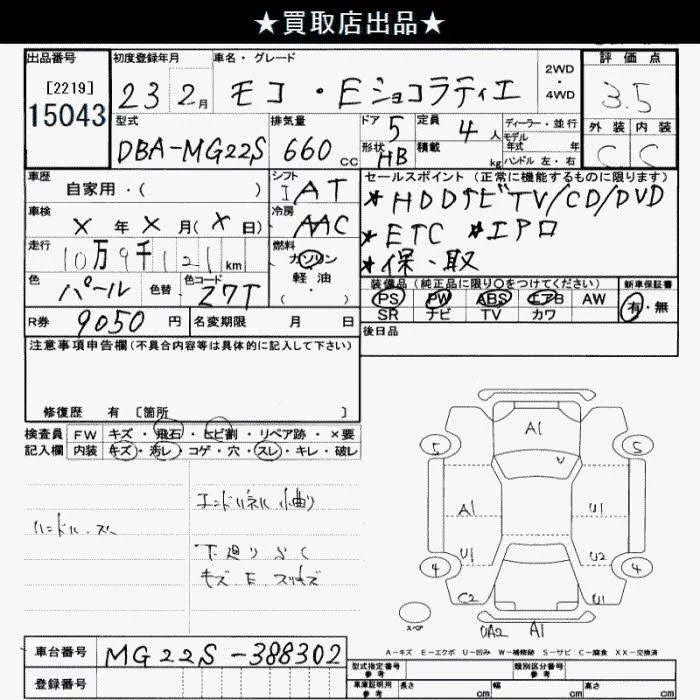 ★買取店出品★
出品番号
[2219]
15043
初度登録年月
23 2月
車名・グレード
モコ ・ Eショコラティエ
2WD
・
4WD
評価点
3.5
外装 内装
C C
型式
DBA-MG22S
排気量
660 cc
ドア 5
形状 HB
定員 4 人
積載 kg
ディーラー・並行
モデル
年式 年
ハンドル 左・右
車歴
自家用・( )
シフト
IAT
セールスポイント (正常に機能するものに限ります)
* HDDナビ TV/CD/DVD
* ETC * エアロ
* 保・取
車検
X 年 X 月(X 日)
冷房
AAC
走行
10万9千121km
燃料
ガソリン
軽油
( ・ )
色
パール
色替
色コード
Z7T
装備品 (純正品に限り○をつけてください)
PS PW ABS エアB AW
SR ナビ TV カワ
新車保証書
有・無
R券 9050 円
名変期限 月 日
後日品
注意事項申告欄(不具合内容等は具体的に記入して下さい)
修復歴 有 〔箇所 〕
検査員 FW キズ・飛石・ヒビ割・リペア跡・×要
記入欄 内装 キズ・汚レ・コゲ・穴・スレ・キレ・破レ
エンドパネル 小曲り
ハンドル、スレ
下廻り S C
キズ E スリキズ
A1
5 5
V
A1 U1
U1 U2
4 4
C2 U1
スペア
UA2 A1
A-キズ E-エクボ U-凹み W-補修跡 S-サビ C-腐食 XX-交換済
車台番号 MG22S-388302
登録番号
型式指定番号
参考
類別区分番号
参考
車庫証明用
参考
長さ cm
幅 cm
高さ cm